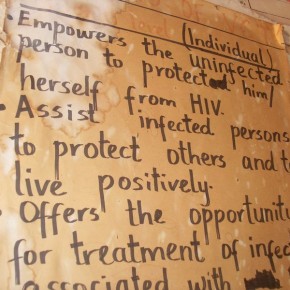 (Individual)
• Empowers the uninfected
person to protect him/
herself from HIV.
• Assist infected persons
to protect others and to
live positively.
• Offers the opportunity
for treatment of infec
associated with